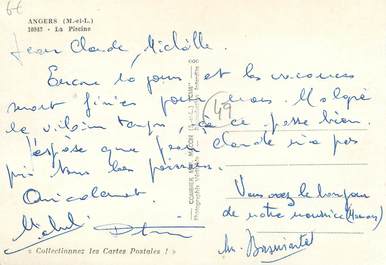 6€
ANGERS (M.-et-L.)
10847 - La Piscine
Jean Claude, Michèle.
Encore 10 jours et les vacances
sont finies pour nous. Malgré
le vilain temps, ça se passe bien.
J'espère que Jean Claude n'a pas
pris tous les poissons.
Amicalement.
Michel
49
Vous avez le bonjour
de notre nourrice
M.
COMBIER IMP. MACON
« Collectionnez les Cartes Postales ! »